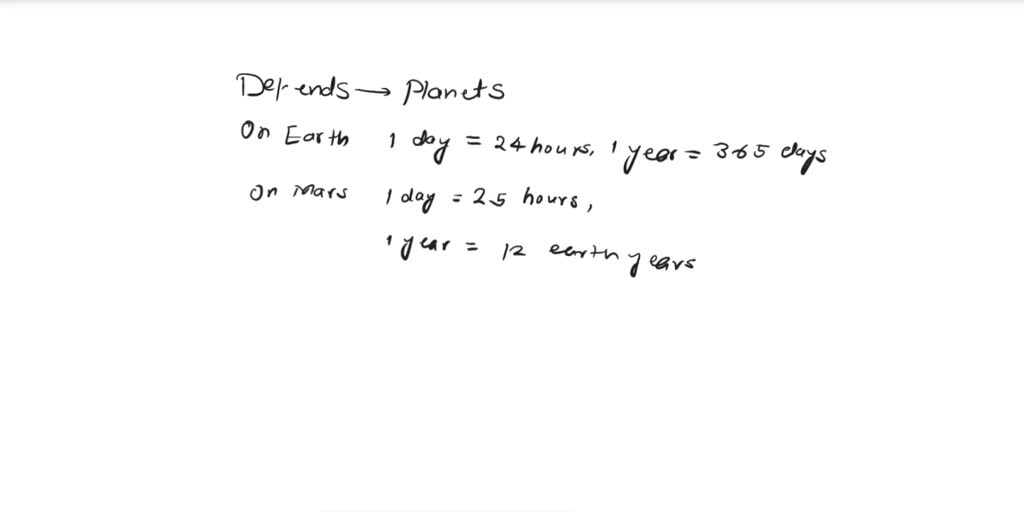 Depends → Planets
On Earth 1 day = 24 hours, 1 year = 365 days
On Mars 1 day = 25 hours,
1 year = 12 earth years